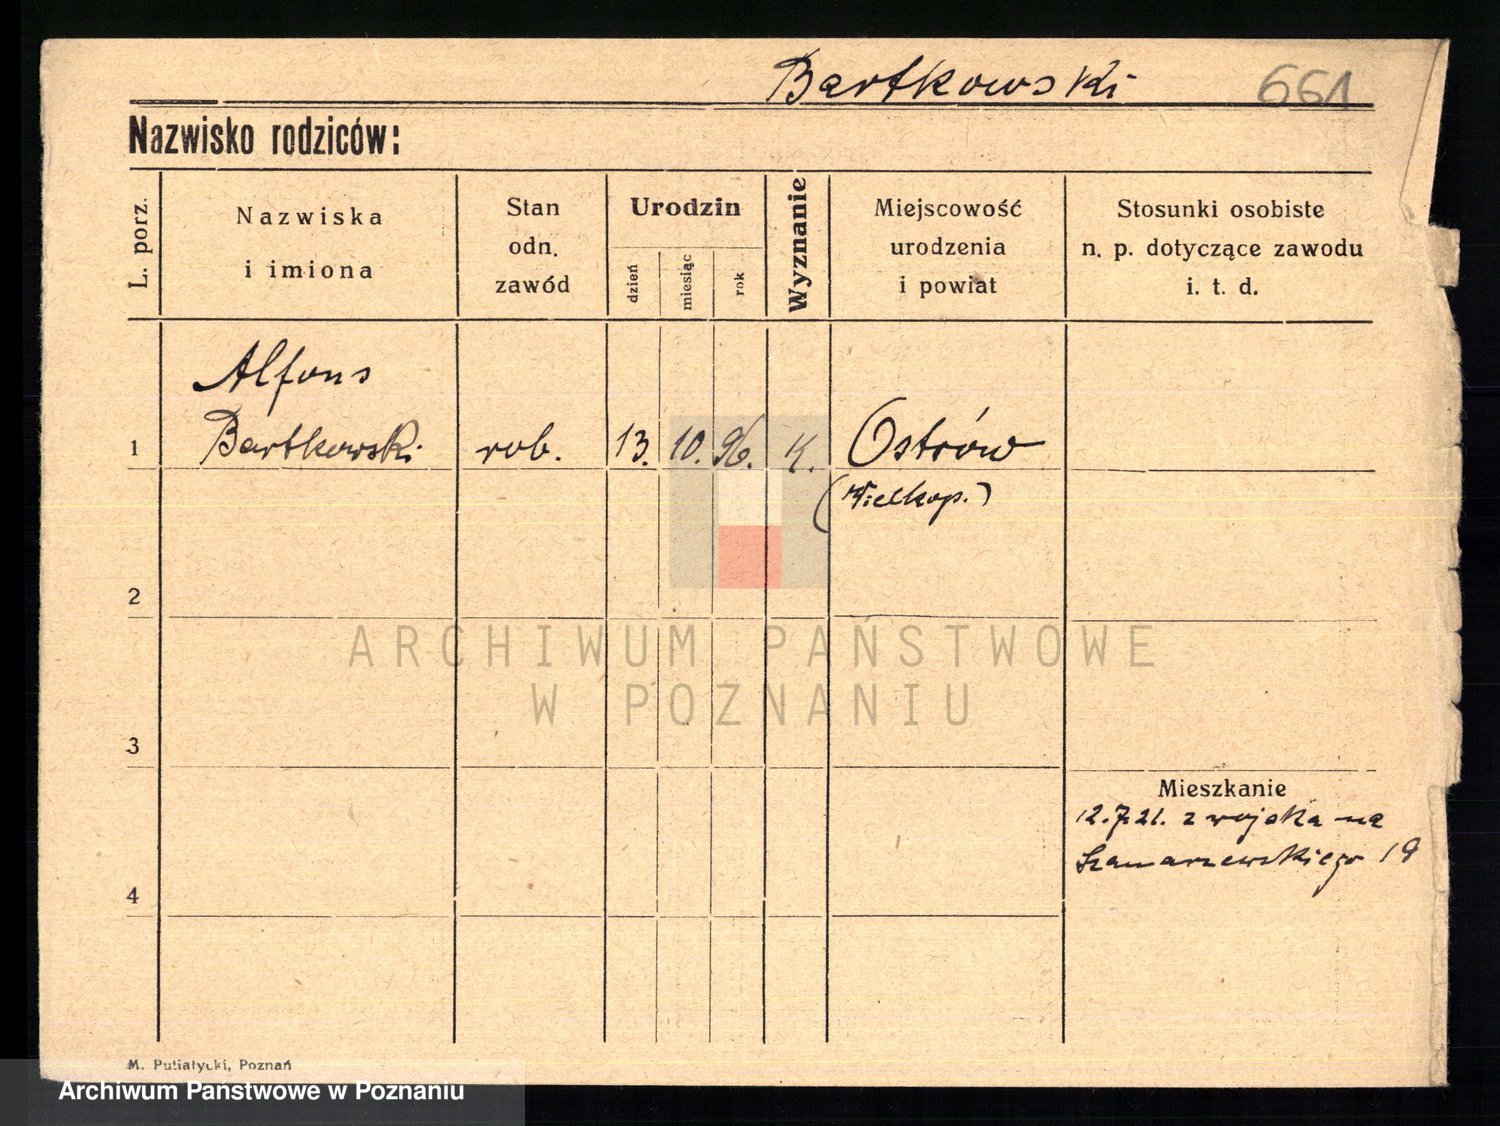 Bartkowski 661
Nazwisko rodziców:
L. porz.
Nazwiska
i imiona
Stan
odn.
zawód
Urodzin
dzień
miesiąc
rok
Wyznanie
Miejscowość
urodzenia
i powiat
Stosunki osobiste
n. p. dotyczące zawodu
i. t. d.
Alfons
1 Bartkowski rob. 13. 10. 96. K. Ostrów
(Wielkop.)
2
ARCHIWUM PAŃSTWOWE
W POZNANIU
3
Mieszkanie
12.7.21. z wojska na
Szamarzewskiego 19
4
M. Putiatycki, Poznań
Archiwum Państwowe w Poznaniu